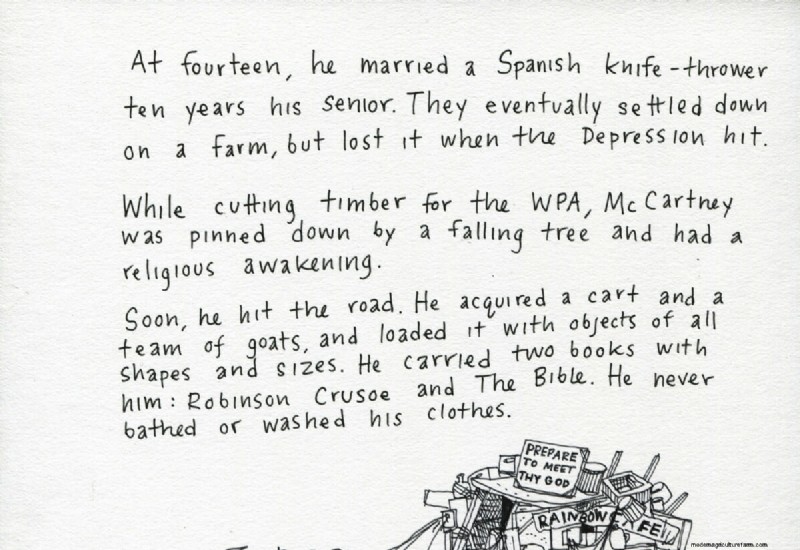 At fourteen, he married a Spanish knife-thrower
ten years his senior. They eventually settled down
on a farm, but lost it when the Depression hit.
While cutting timber for the WPA, McCartney
was pinned down by a falling tree and had a
religious awakening.
Soon, he hit the road. He acquired a cart and a
team of goats, and loaded it with objects of all
shapes and sizes. He carried two books with
him: Robinson Crusoe and The Bible. He never
bathed or washed his clothes.
PREPARE
TO MEET
THY GOD
RAINBOW
FE